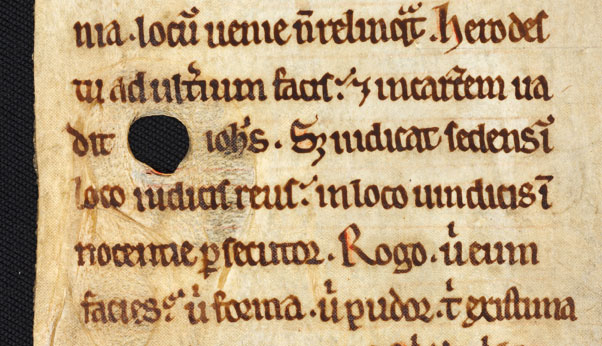 nia. locū ueniẹ n̄ relinq̄t. Herodes
tu adult̄ium facis. ⁊ in carc̄em ua
dit ioh̄s. Sꝫ iudicat sedens ī
loco iudicis reus. in loco uindicis ī
nocentie ꝑsecutor. Rogo. u͛ eum
facies. u͛ forma. u͛ pudor. t͛ existima